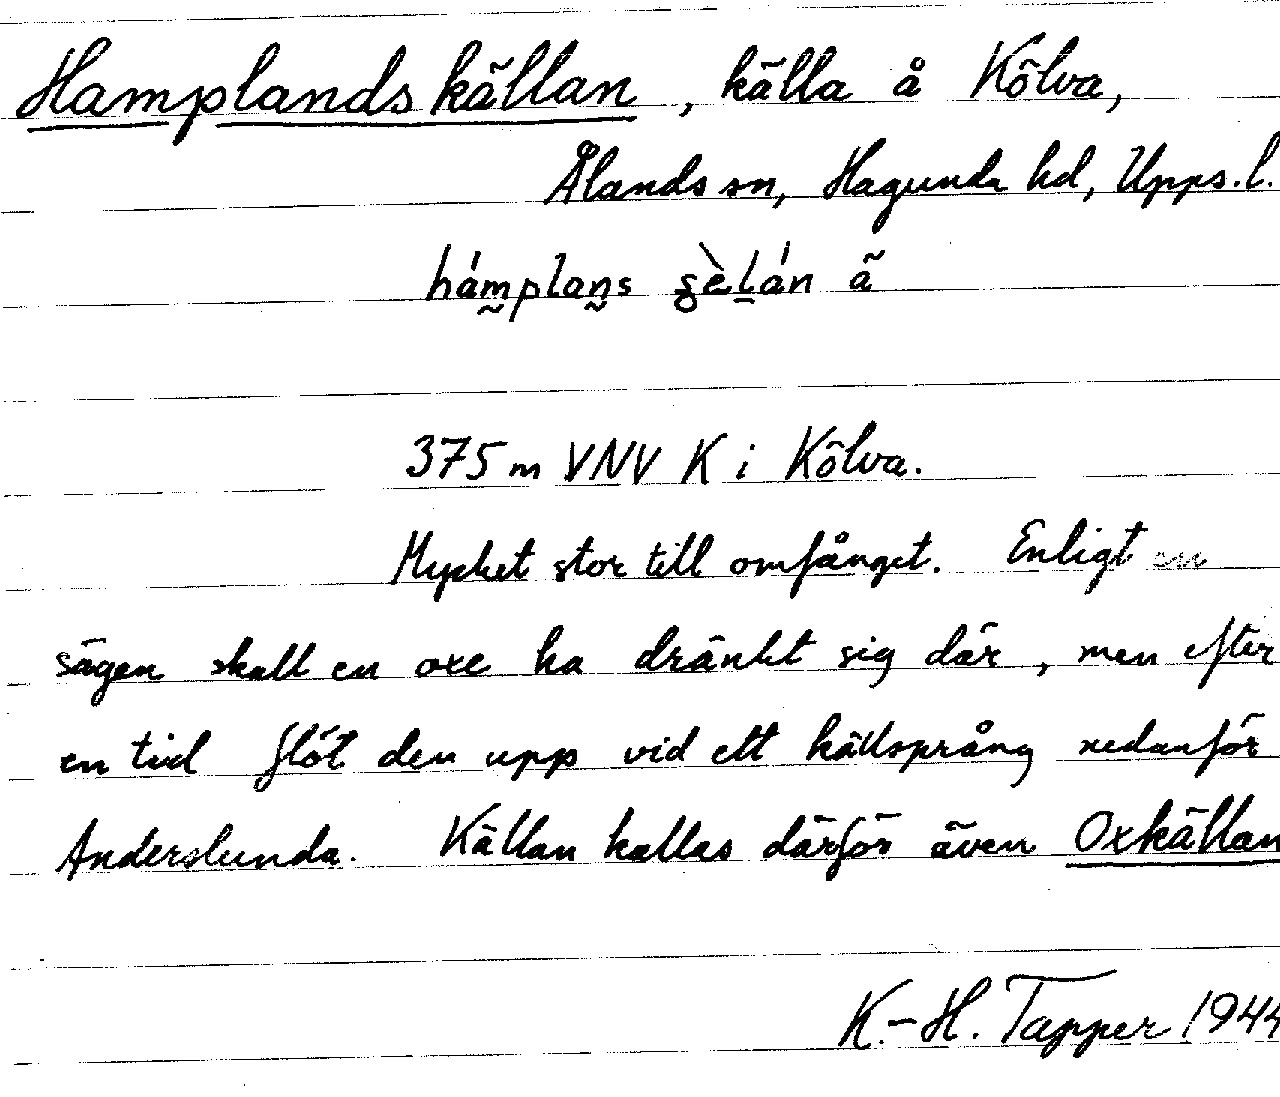 Hamplandskällan, källa å Kölva,
Ålands sn, Hagunda hd, Upps.l.
375 m VNV K i Kölva.
Mycket stor till omfånget. Enligt en
sägen skall en oxe ha dränkt sig där, men efter
en tid flöt den upp vid ett källsprång nedanför
Anderslunda. Källan kallas därför även Oxkällan
K.-H. Tapper 1944